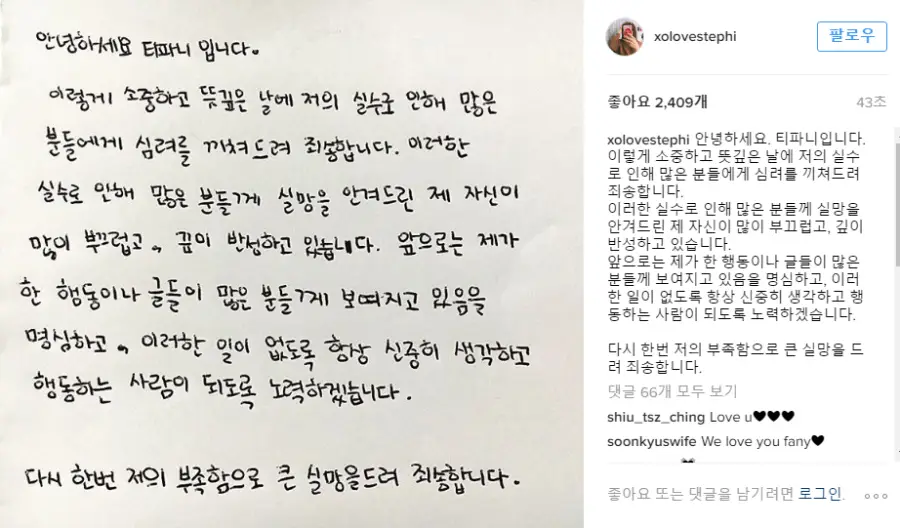 안녕하세요 티파니 입니다.
이렇게 소중하고 뜻깊은 날에 저의 실수로 인해 많은
분들에게 심려를 끼쳐드려 죄송합니다. 이러한
실수로 인해 많은 분들께 실망을 안겨드린 제 자신이
많이 부끄럽고, 깊이 반성하고 있습니다. 앞으로는 제가
한 행동이나 글들이 많은 분들께 보여지고 있음을
명심하고, 이러한 일이 없도록 항상 신중히 생각하고
행동하는 사람이 되도록 노력하겠습니다.
다시 한번 저의 부족함으로 큰 실망을드려 죄송합니다.
xolovestephi
팔로우
좋아요 2,409개
43초
xolovestephi 안녕하세요. 티파니입니다.
이렇게 소중하고 뜻깊은 날에 저의 실수
로 인해 많은 분들에게 심려를 끼쳐드려
죄송합니다.
이러한 실수로 인해 많은 분들께 실망을
안겨드린 제 자신이 많이 부끄럽고, 깊이
반성하고 있습니다.
앞으로는 제가 한 행동이나 글들이 많은
분들께 보여지고 있음을 명심하고, 이러
한 일이 없도록 항상 신중히 생각하고 행
동하는 사람이 되도록 노력하겠습니다.
다시 한번 저의 부족함으로 큰 실망을 드
려 죄송합니다.
댓글 66개 모두 보기
shiu_tsz_ching Love u♥♥♥
soonkyuswife We love you fany♥
좋아요 또는 댓글을 남기려면 로그인.